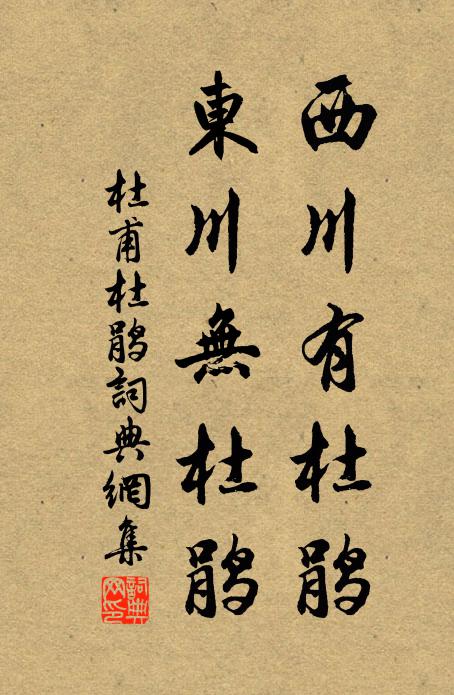 西川有杜鹃
東川無杜鹃
杜甫杜鹃詞典網集
詞典
网印